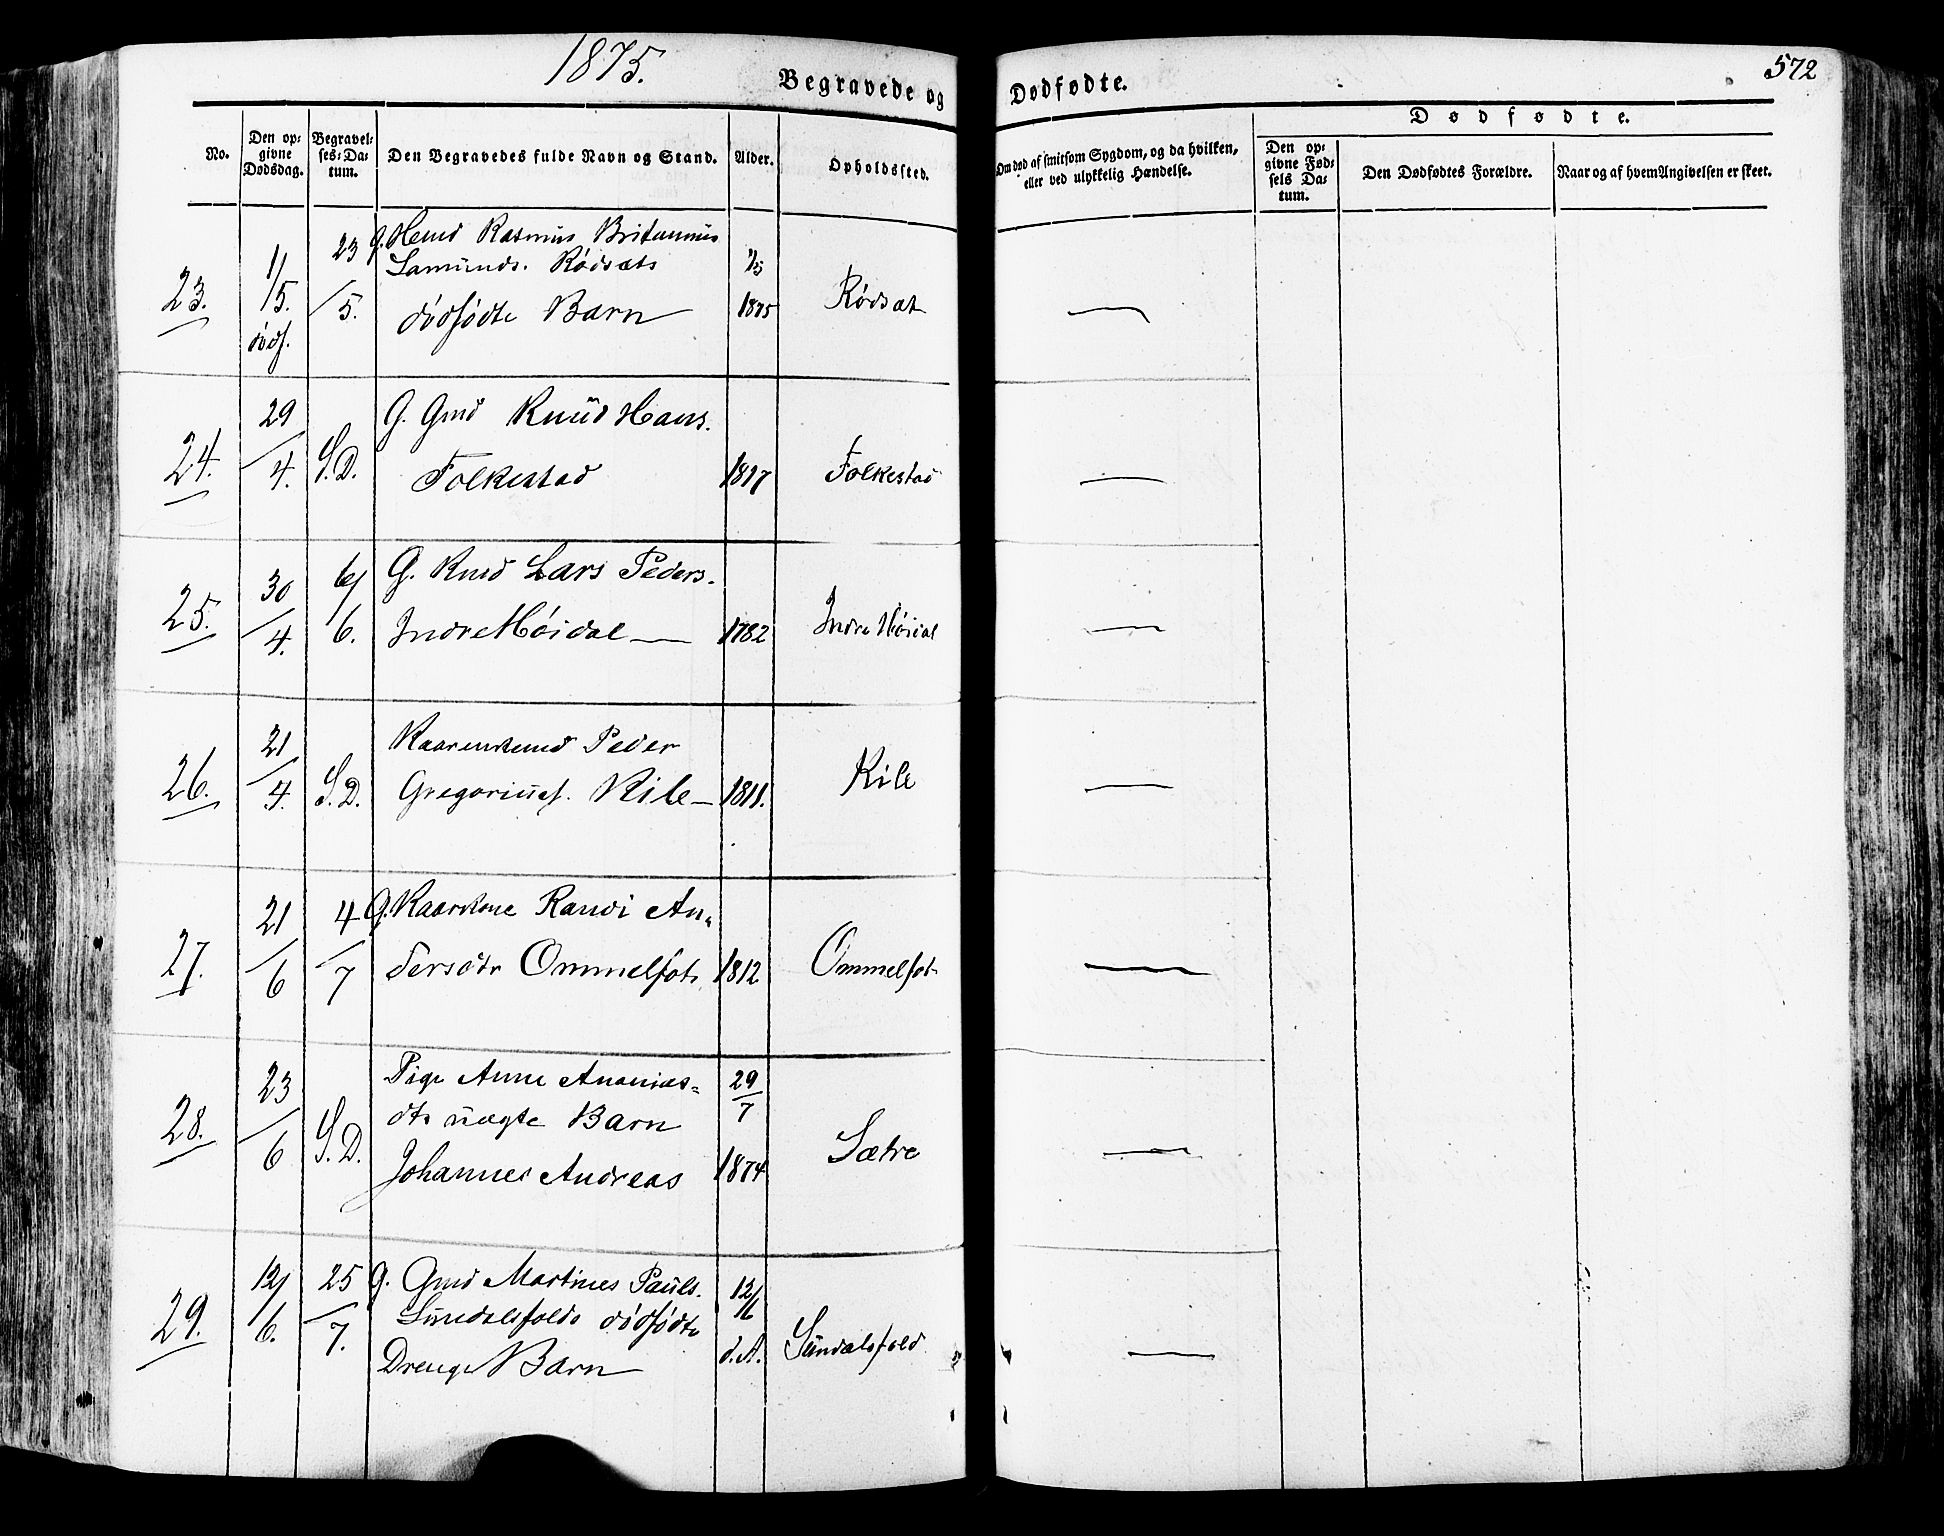 1875.
Begravede og Dødfødte.
572
No.
Den opgivne Dødsdag.
Begravelses-Datum.
Den Begravedes fulde Navn og Stand.
Alder.
Opholdssted.
Om død af smitsom Sygdom, og da hvilken, eller ved ulykkelig Hændelse.
Dødfødte.
Den opgivne Fødsels Datum.
Den Dødfødtes Forældre.
Naar og af hvem Angivelsen er skeet.
23.
1/5. dødf.
23/5.
G. Rasmus Britannus
Samunds. Rødsæts
dødfødte Barn
1/5 1875
Rødsæt
24.
29/4.
S.D.
G. Gmd Knud Hans.
Folkestad
1817
Folkestad
25.
30/4.
6/6.
G. Lars Peders.
Indre Høidal
1782
Indre Høidal
26.
21/4.
S.D.
Kaarenkemd Peder
Gregoriusf. Kile
1811.
Kile
27.
21/6
4/7
G. Kaarkone Randi An-
dersdtr Ommelfot
1812
Ommelfot
28.
23/6
S.D.
Pige Anne Ananias-
dtr uægte Barn
Johannes Andreas
29/7 1874
Sætre
29.
12/6.
25/7.
G. Gmd Martinus Pauls.
Sundalsfolds dødfødte
Drenge Barn
12/6 d.A.
Sundalsfold